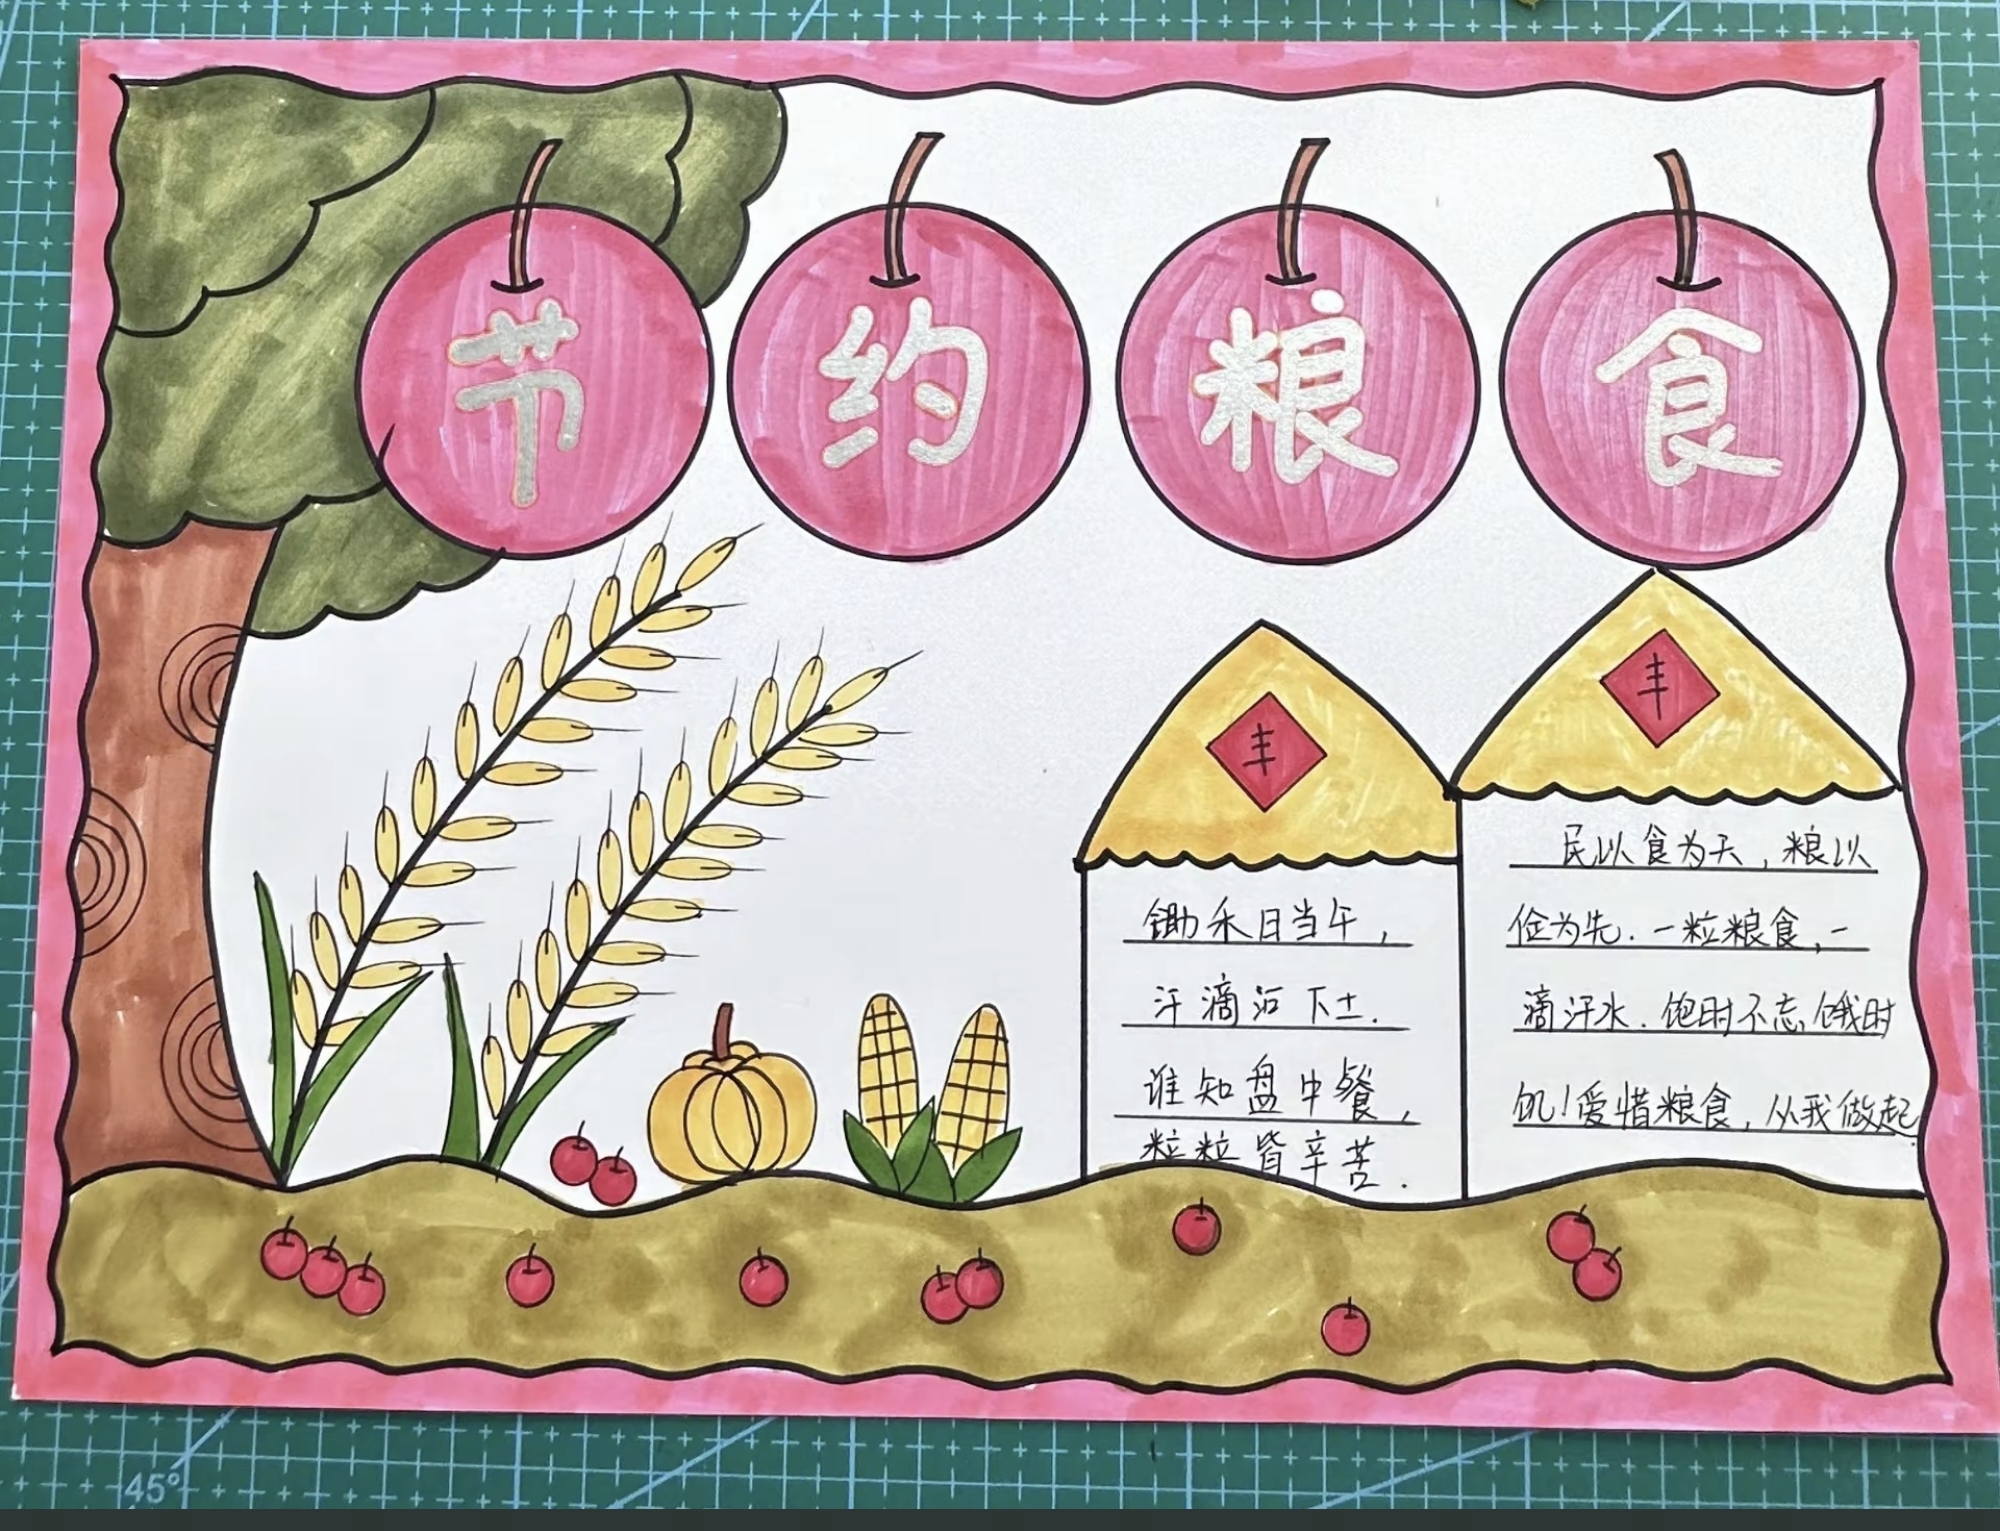 节约粮食
丰
丰
锄禾日当午,
汗滴禾下土.
谁知盘中餐,
粒粒皆辛苦.
民以食为天,粮以
俭为先.一粒粮食,一
滴汗水.饱时不忘饿时
饥!爱惜粮食,从我做起.
45°